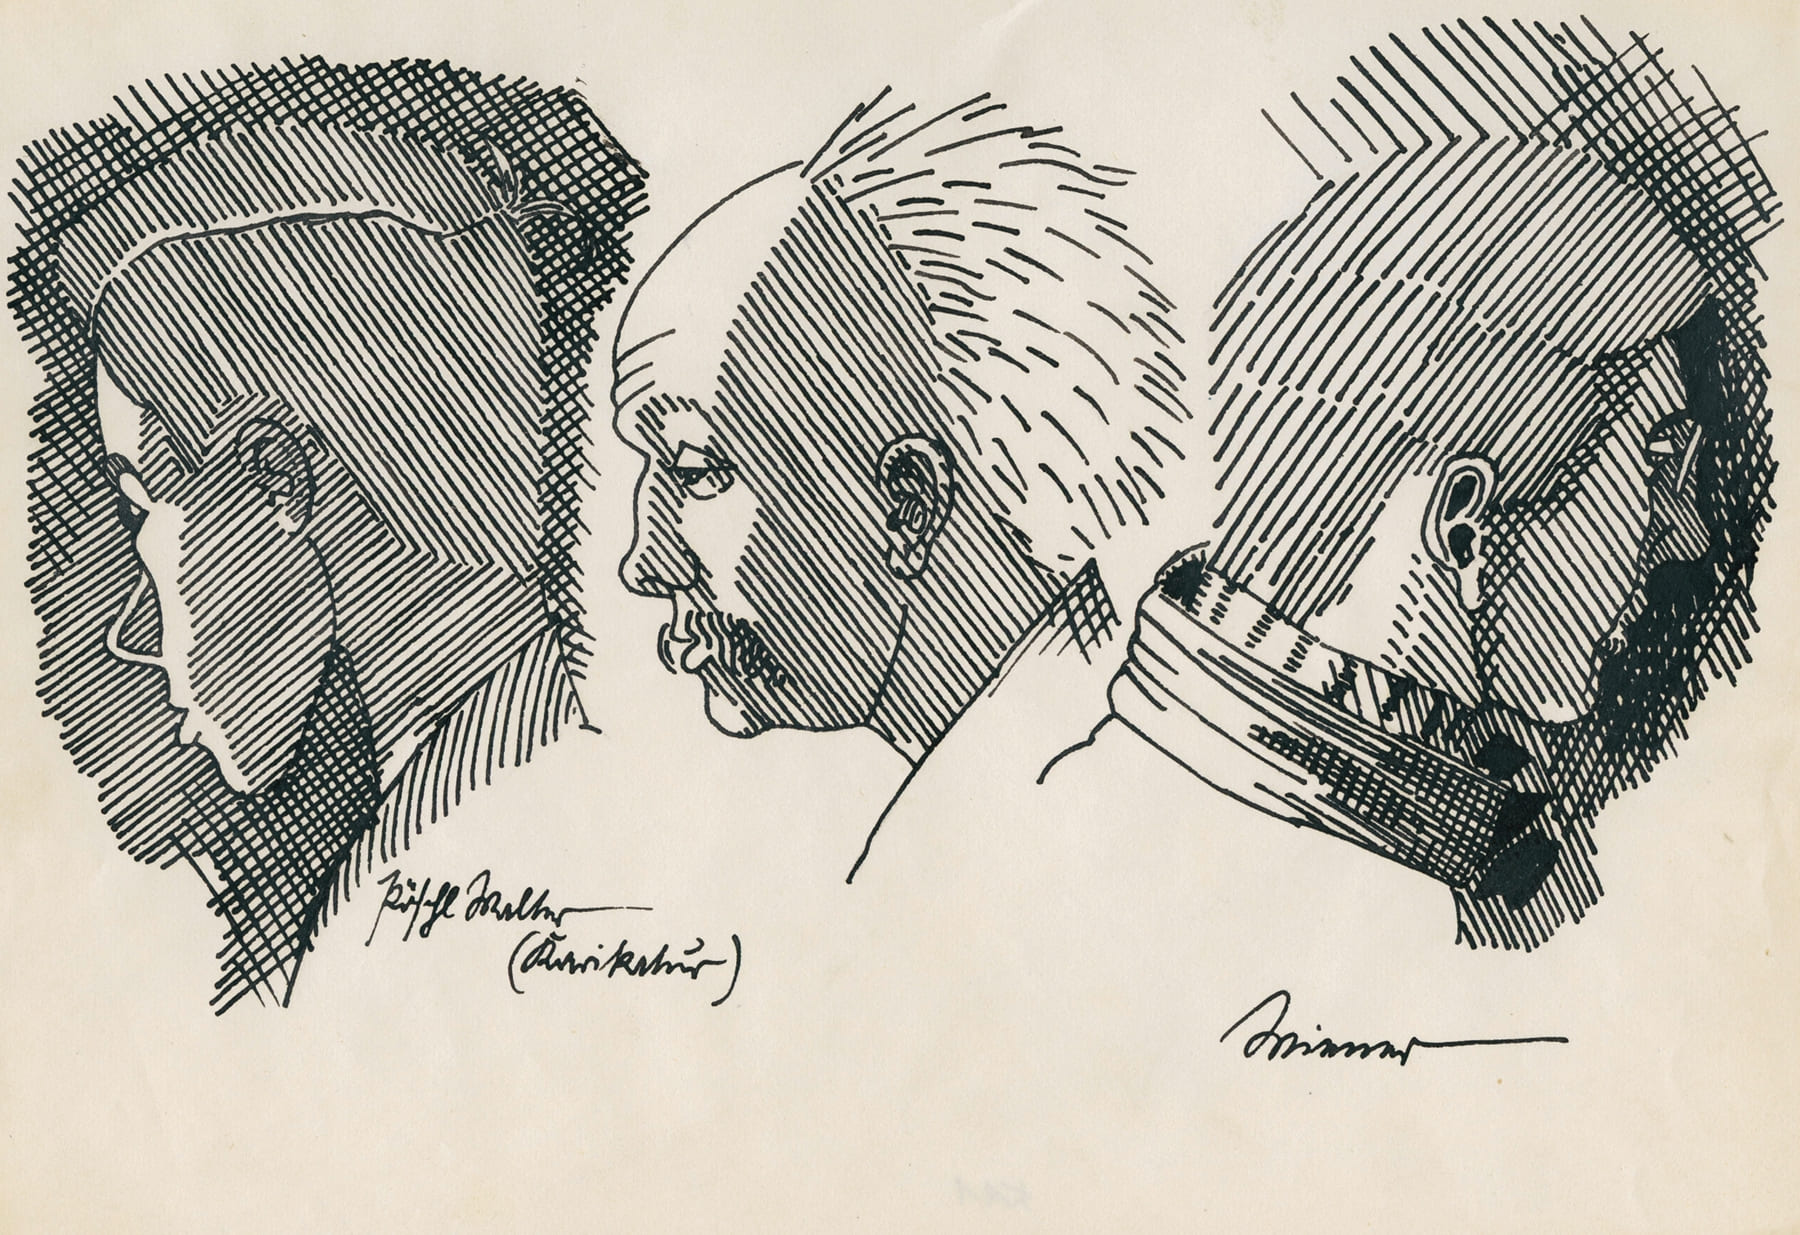 Pöschl Walter
(Karikatur)
Wimmer